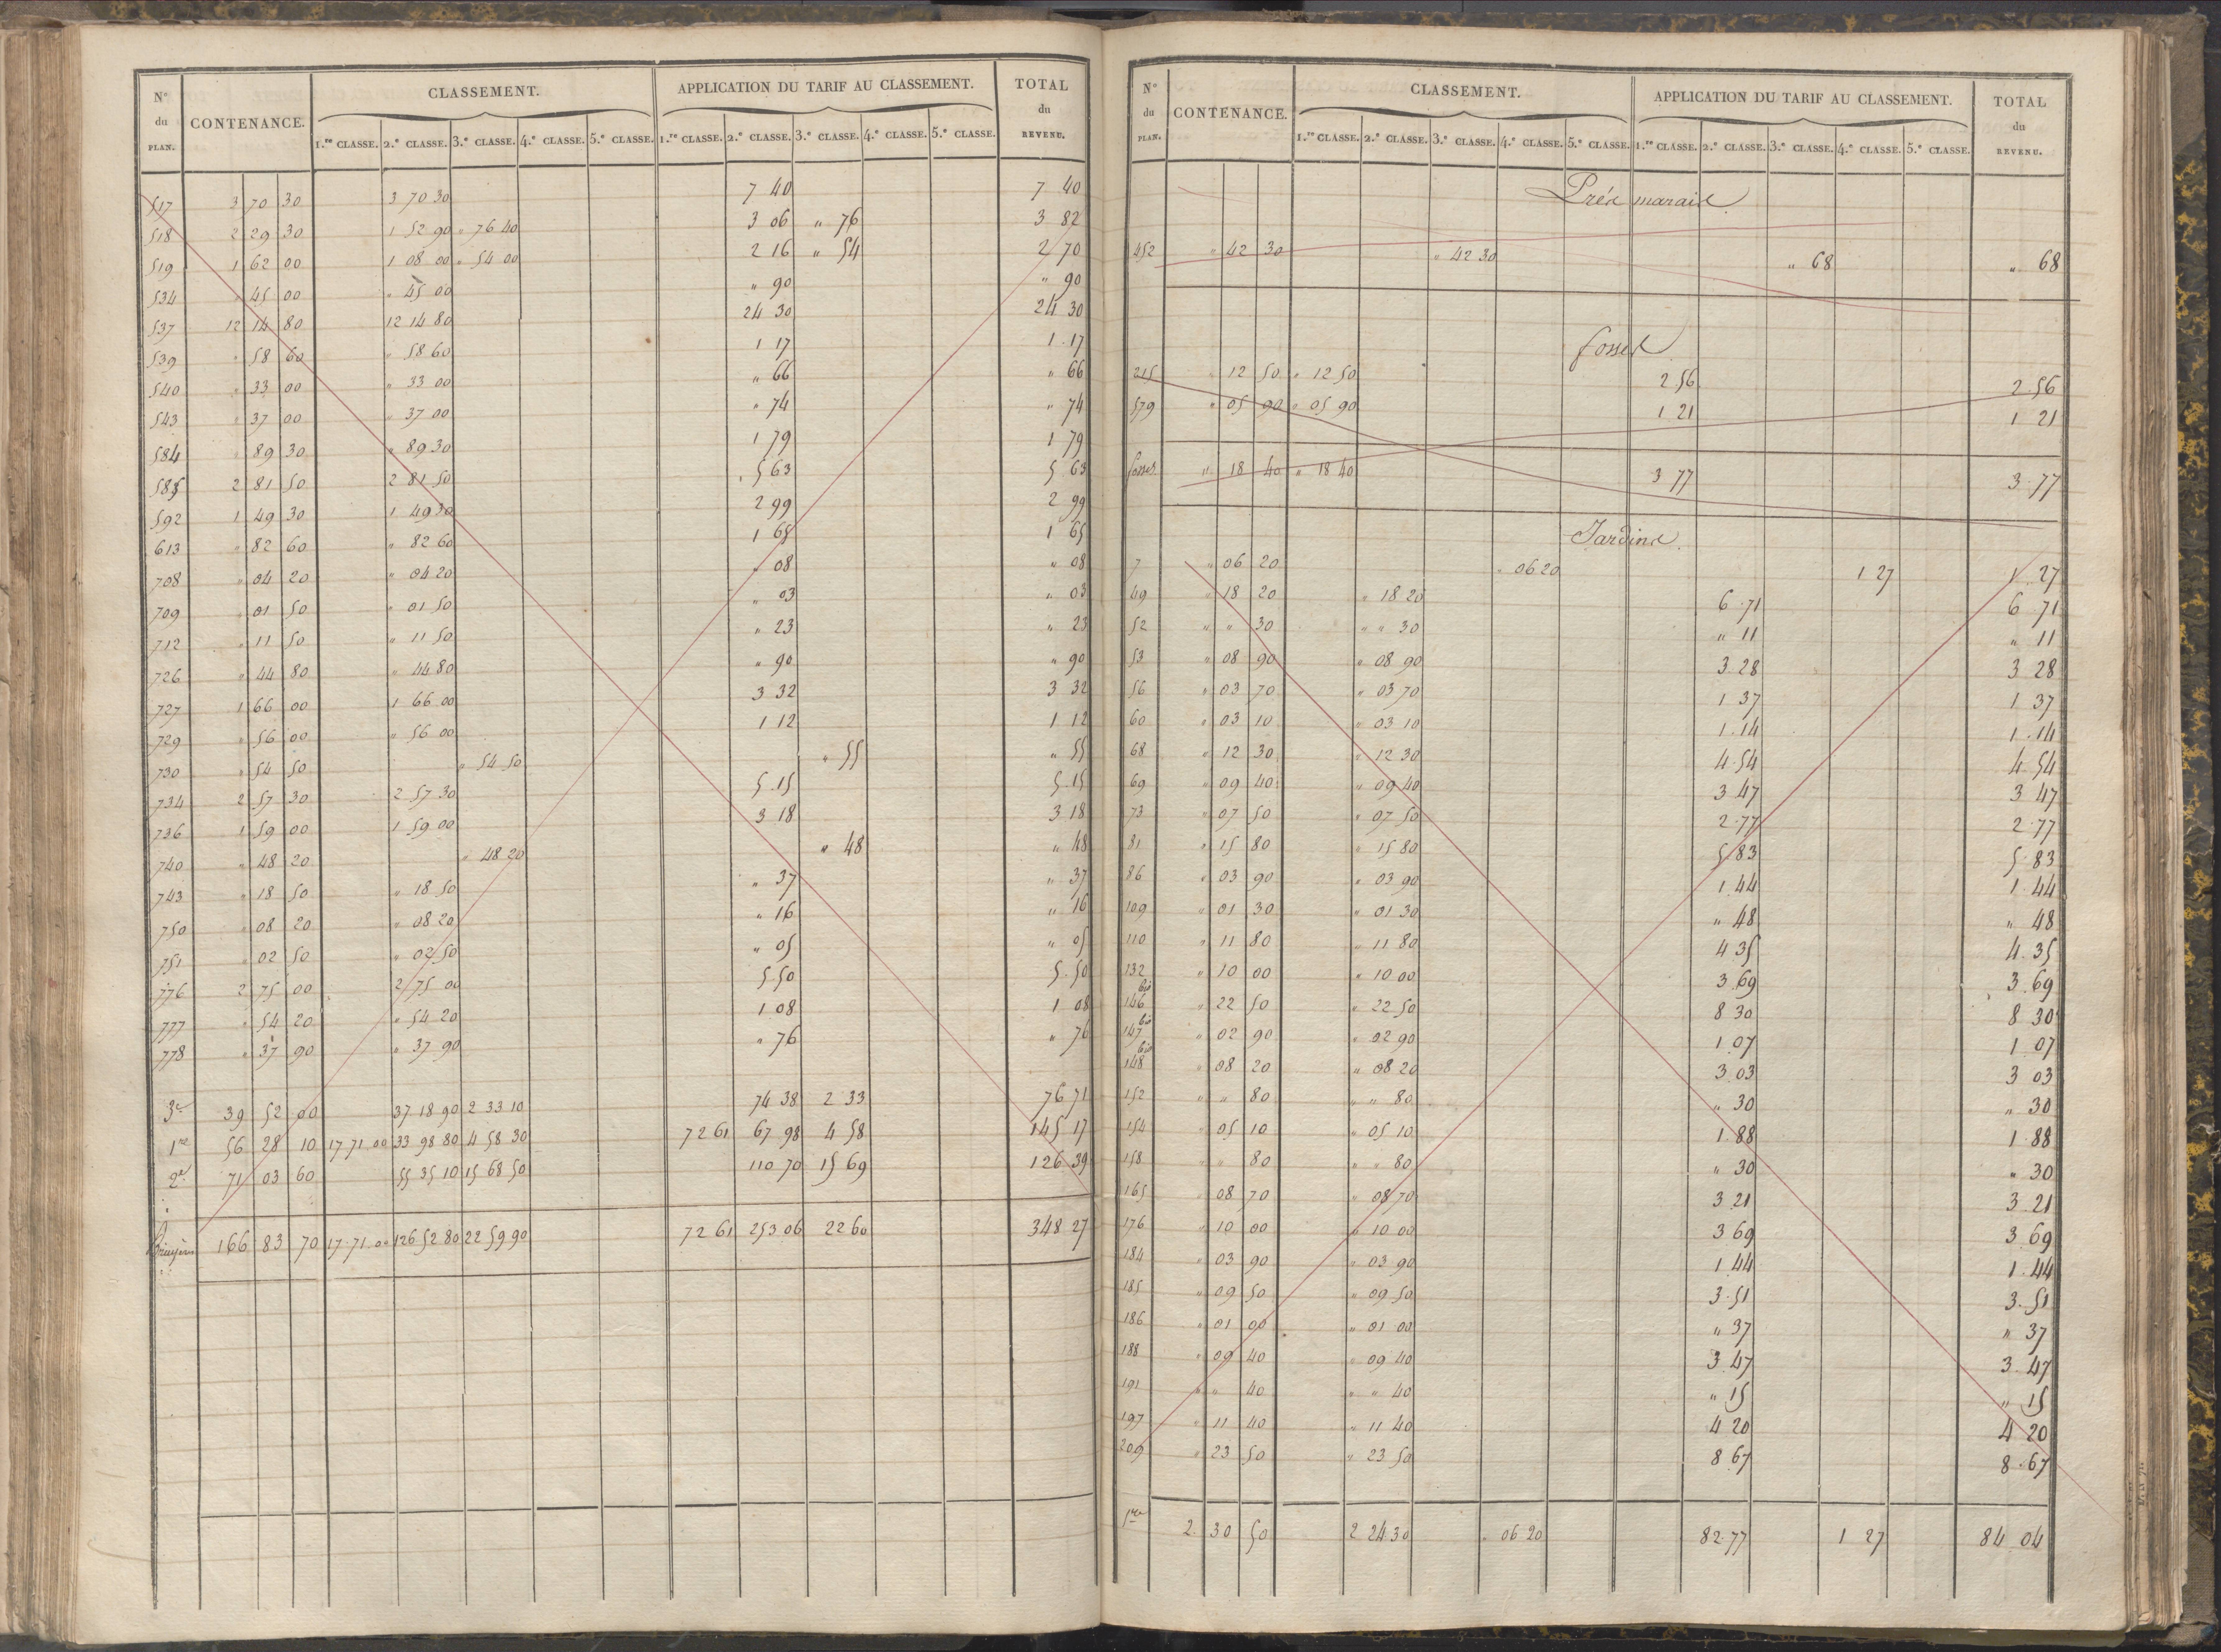 N° du PLAN. CONTENANCE. CLASSEMENT. APPLICATION DU TARIF AU CLASSEMENT. TOTAL du REVENU.
1.re CLASSE. 2.e CLASSE. 3.e CLASSE. 4.e CLASSE. 5.e CLASSE. 1.re CLASSE. 2.e CLASSE. 3.e CLASSE. 4.e CLASSE. 5.e CLASSE.
517 3 70 30 3 70 30 7 40 7 40
518 2 29 30 1 52 90 " 76 40 3 06 " 76 3 82
519 1 62 00 1 08 00 " 54 00 2 16 " 54 2 70
534 " 45 00 " 45 00 " 90 " 90
537 12 14 80 12 14 80 24 30 24 30
539 " 58 60 " 58 60 1 17 1 17
540 " 33 00 " 33 00 " 66 " 66
543 " 37 00 " 37 00 " 74 " 74
584 " 89 30 " 89 30 1 79 1 79
585 2 81 50 2 81 50 5 63 5 63
592 1 49 30 1 49 30 2 99 2 99
613 " 82 60 " 82 60 1 65 1 65
708 " 04 20 " 04 20 " 08 " 08
709 " 01 50 " 01 50 " 03 " 03
712 " 11 50 " 11 50 " 23 " 23
726 " 44 80 " 44 80 " 90 " 90
727 1 66 00 1 66 00 3 32 3 32
729 " 56 00 " 56 00 1 12 1 12
730 " 54 50 " 54 50 " 55 " 55
734 2 57 30 2 57 30 5.15 5.15
736 1 59 00 1 59 00 3 18 3 18
740 " 48 20 " 48 20 " 48 " 48
743 " 18 50 " 18 50 " 37 " 37
750 " 08 20 " 08 20 " 16 " 16
751 " 02 50 " 02 50 " 05 " 05
776 2 75 00 2 75 00 5.50 5.50
777 " 54 20 " 54 20 1 08 1 08
778 " 37 90 " 37 90 " 76 " 76
3e 39 52 00 37 18 90 2 33 10 74 38 2 33 76 71
1re 56 28 10 17 71 00 33 98 80 4 58 30 72 61 67 98 4 58 145 17
2e 71 03 60 55 35 10 15 68 50 110 70 15 69 126 39
Bruyères 166 83 70 17 71 00 126 52 80 22 59 90 72 61 253 06 22 60 348 27
N° du PLAN. CONTENANCE. CLASSEMENT. APPLICATION DU TARIF AU CLASSEMENT. TOTAL du REVENU.
1.re CLASSE. 2.e CLASSE. 3.e CLASSE. 4.e CLASSE. 5.e CLASSE. 1.re CLASSE. 2.e CLASSE. 3.e CLASSE. 4.e CLASSE. 5.e CLASSE.
Prés marais
452 " 42 30 " 42 30 " 68 " 68
fosses
215 " 12 50 " 12 50 2 56 2 56
579 " 05 90 " 05 90 1 21 1 21
fosses " 18 40 " 18 40 3 77 3.77
Jardins
7 " 06 20 " 06 20 1 27 1 27
49 " 18 20 " 18 20 6.71 6 71
52 " " 30 " " 30 " 11 " 11
53 " 08 90 " 08 90 3.28 3 28
56 " 03 70 " 03 70 1 37 1 37
60 " 03 10 " 03 10 1.14 1.14
68 " 12 30 " 12 30 4.54 4 54
69 " 09 40 " 09 40 3 47 3 47
73 " 07 50 " 07 50 2.77 2.77
81 " 15 80 " 15 80 5 83 5.83
86 " 03 90 " 03 90 1 44 1.44
109 " 01 30 " 01 30 " 48 " 48
110 " 11 80 " 11 80 4 35 4.35
132 " 10 00 " 10 00 3 69 3.69
146 bis " 22 50 " 22 50 8 30 8 30
147 bis " 02 90 " 02 90 1.07 1 07
148 bis " 08 20 " 08 20 3.03 3 03
152 " " 80 " " 80 " 30 " 30
154 " 05 10 " 05 10 1.88 1.88
158 " " 80 " " 80 " 30 " 30
165 " 08 70 " 08 70 3 21 3.21
176 " 10 00 " 10 00 3 69 3.69
184 " 03 90 " 03 90 1 44 1.44
185 " 09 50 " 09 50 3.51 3.51
186 " 01 00 " 01 00 " 37 " 37
188 " 09 40 " 09 40 3 47 3.47
191 " " 40 " " 40 " 15 " 15
197 " 11 40 " 11 40 4 20 4 20
209 " 23 50 " 23 50 8 67 8.67
1re 2 30 50 2 24 30 " 06 20 82.77 1 27 84 04